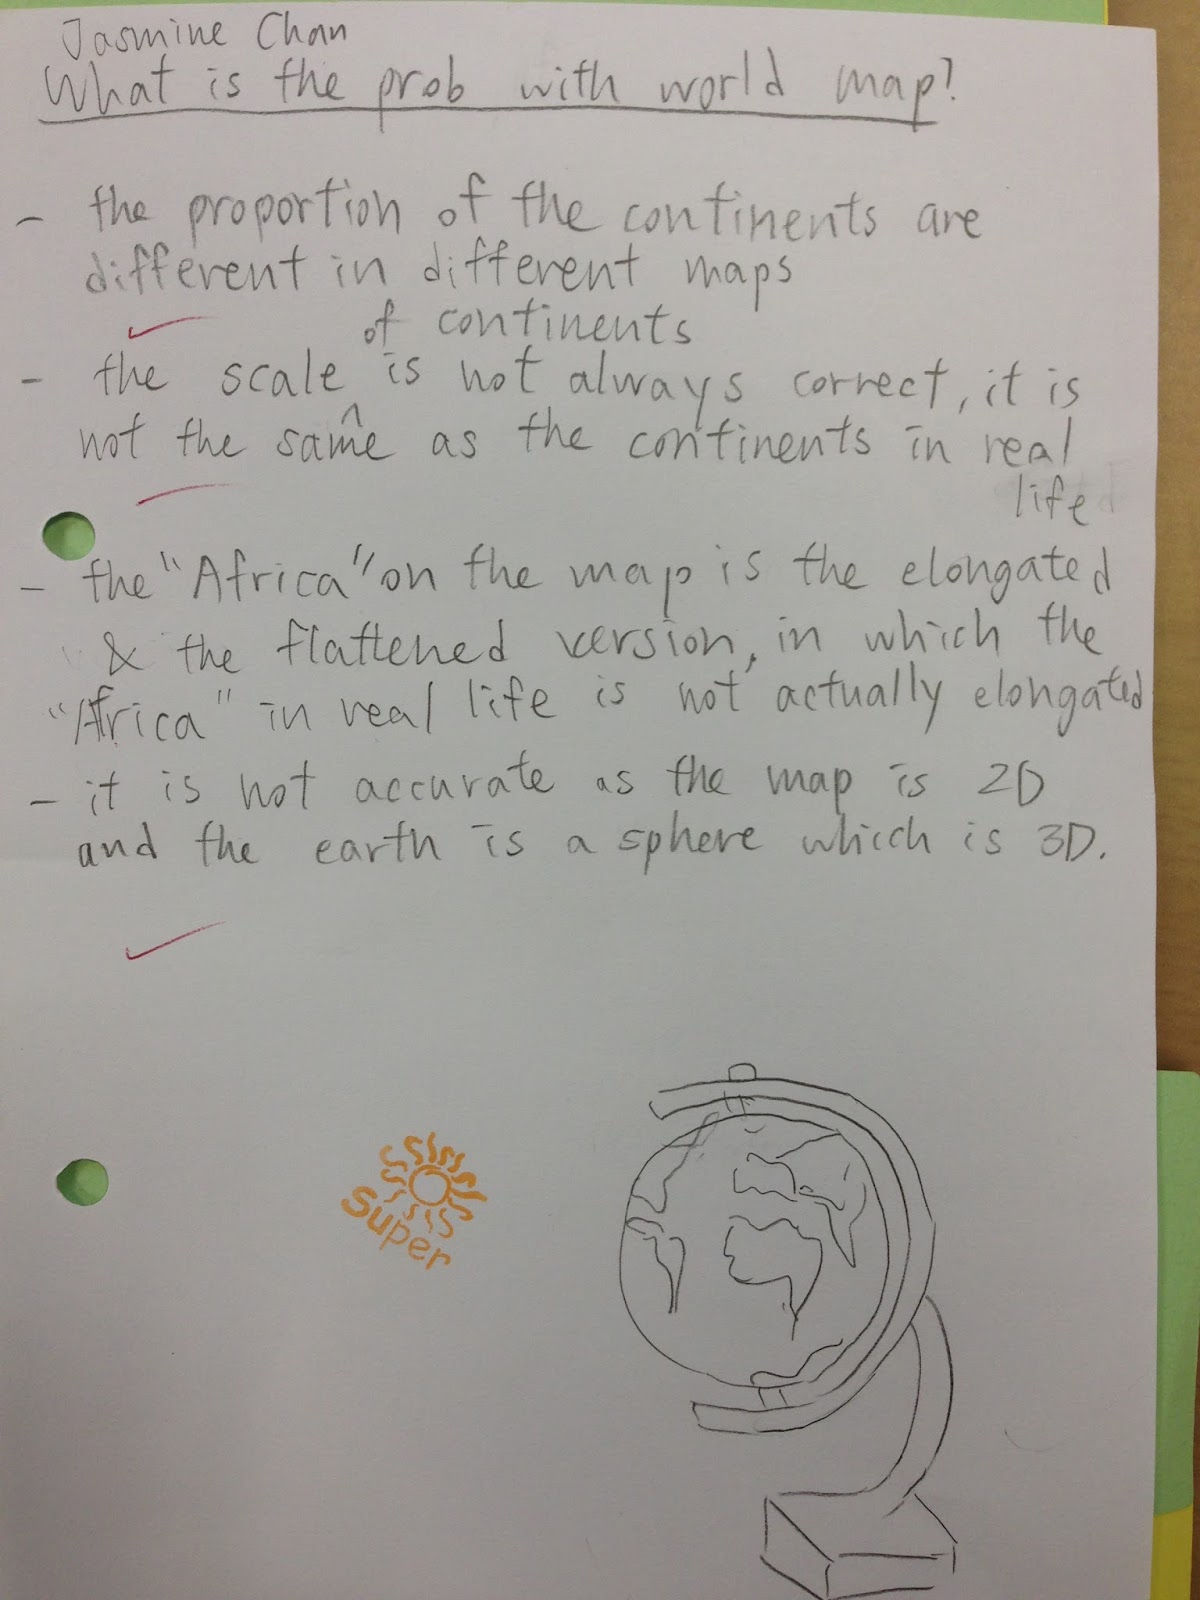 Jasmine Chan
What is the prob with world map?
- the proportion of the continents are
different in different maps
of continents
- the scale ^ is not always correct, it is
not the same as the continents in real
life
- the "Africa" on the map is the elongated
& the flattened version, in which the
"Africa" in real life is not actually elongated
- it is not accurate as the map is 2D
and the earth is a sphere which is 3D.
super